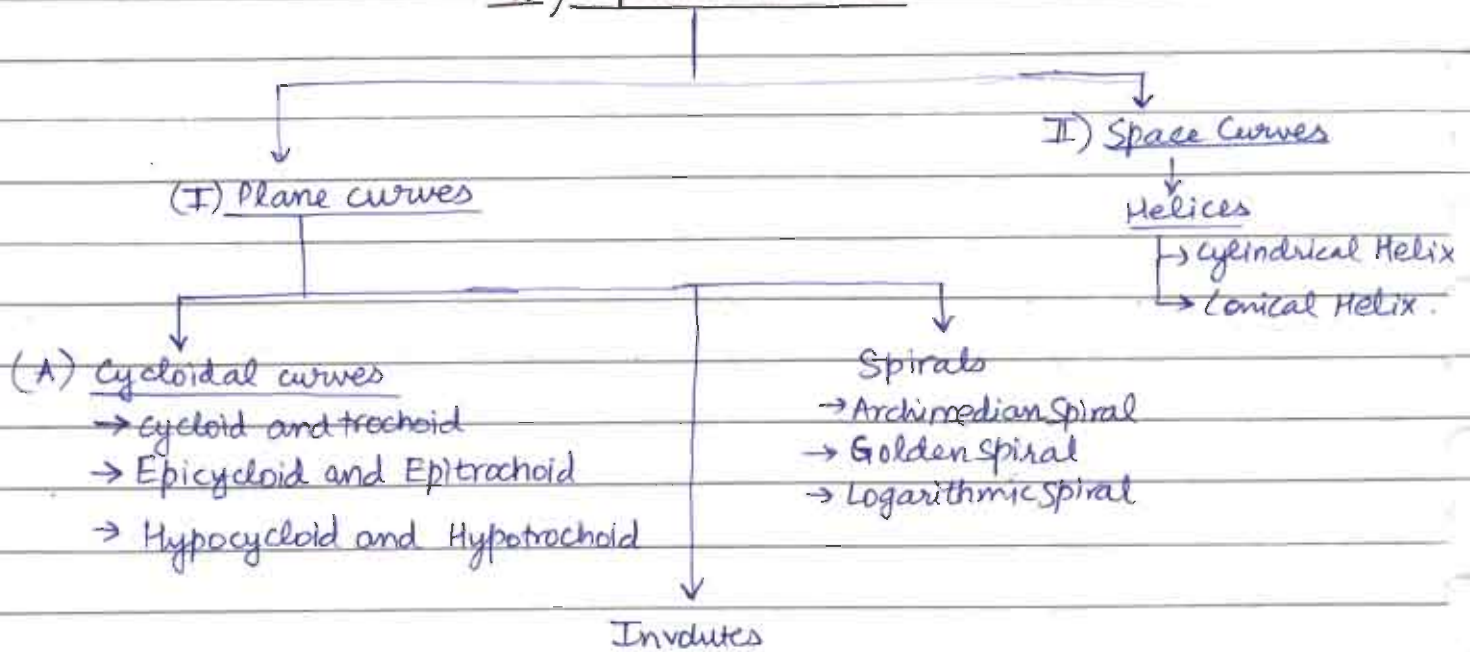 II) Space Curves
(I) Plane curves
Helices
→ Cylindrical Helix
→ Conical Helix.
(A) Cycloidal curves
→ cycloid and trochoid
→ Epicycloid and Epitrochoid
→ Hypocycloid and Hypotrochoid
Spirals
→ Archimedian Spiral
→ Golden spiral
→ Logarithmic spiral
Involutes